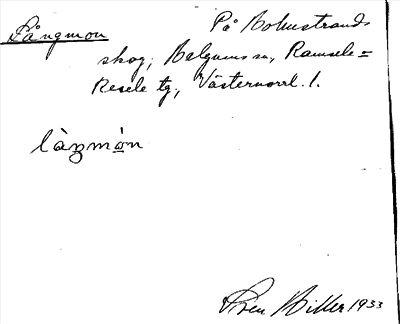 Långmon
På Holmstrands
skog, Helgums sn, Ramsele=
Resele tg, Västernorrl. l.
làŋmòn
Sven Hiller 1933